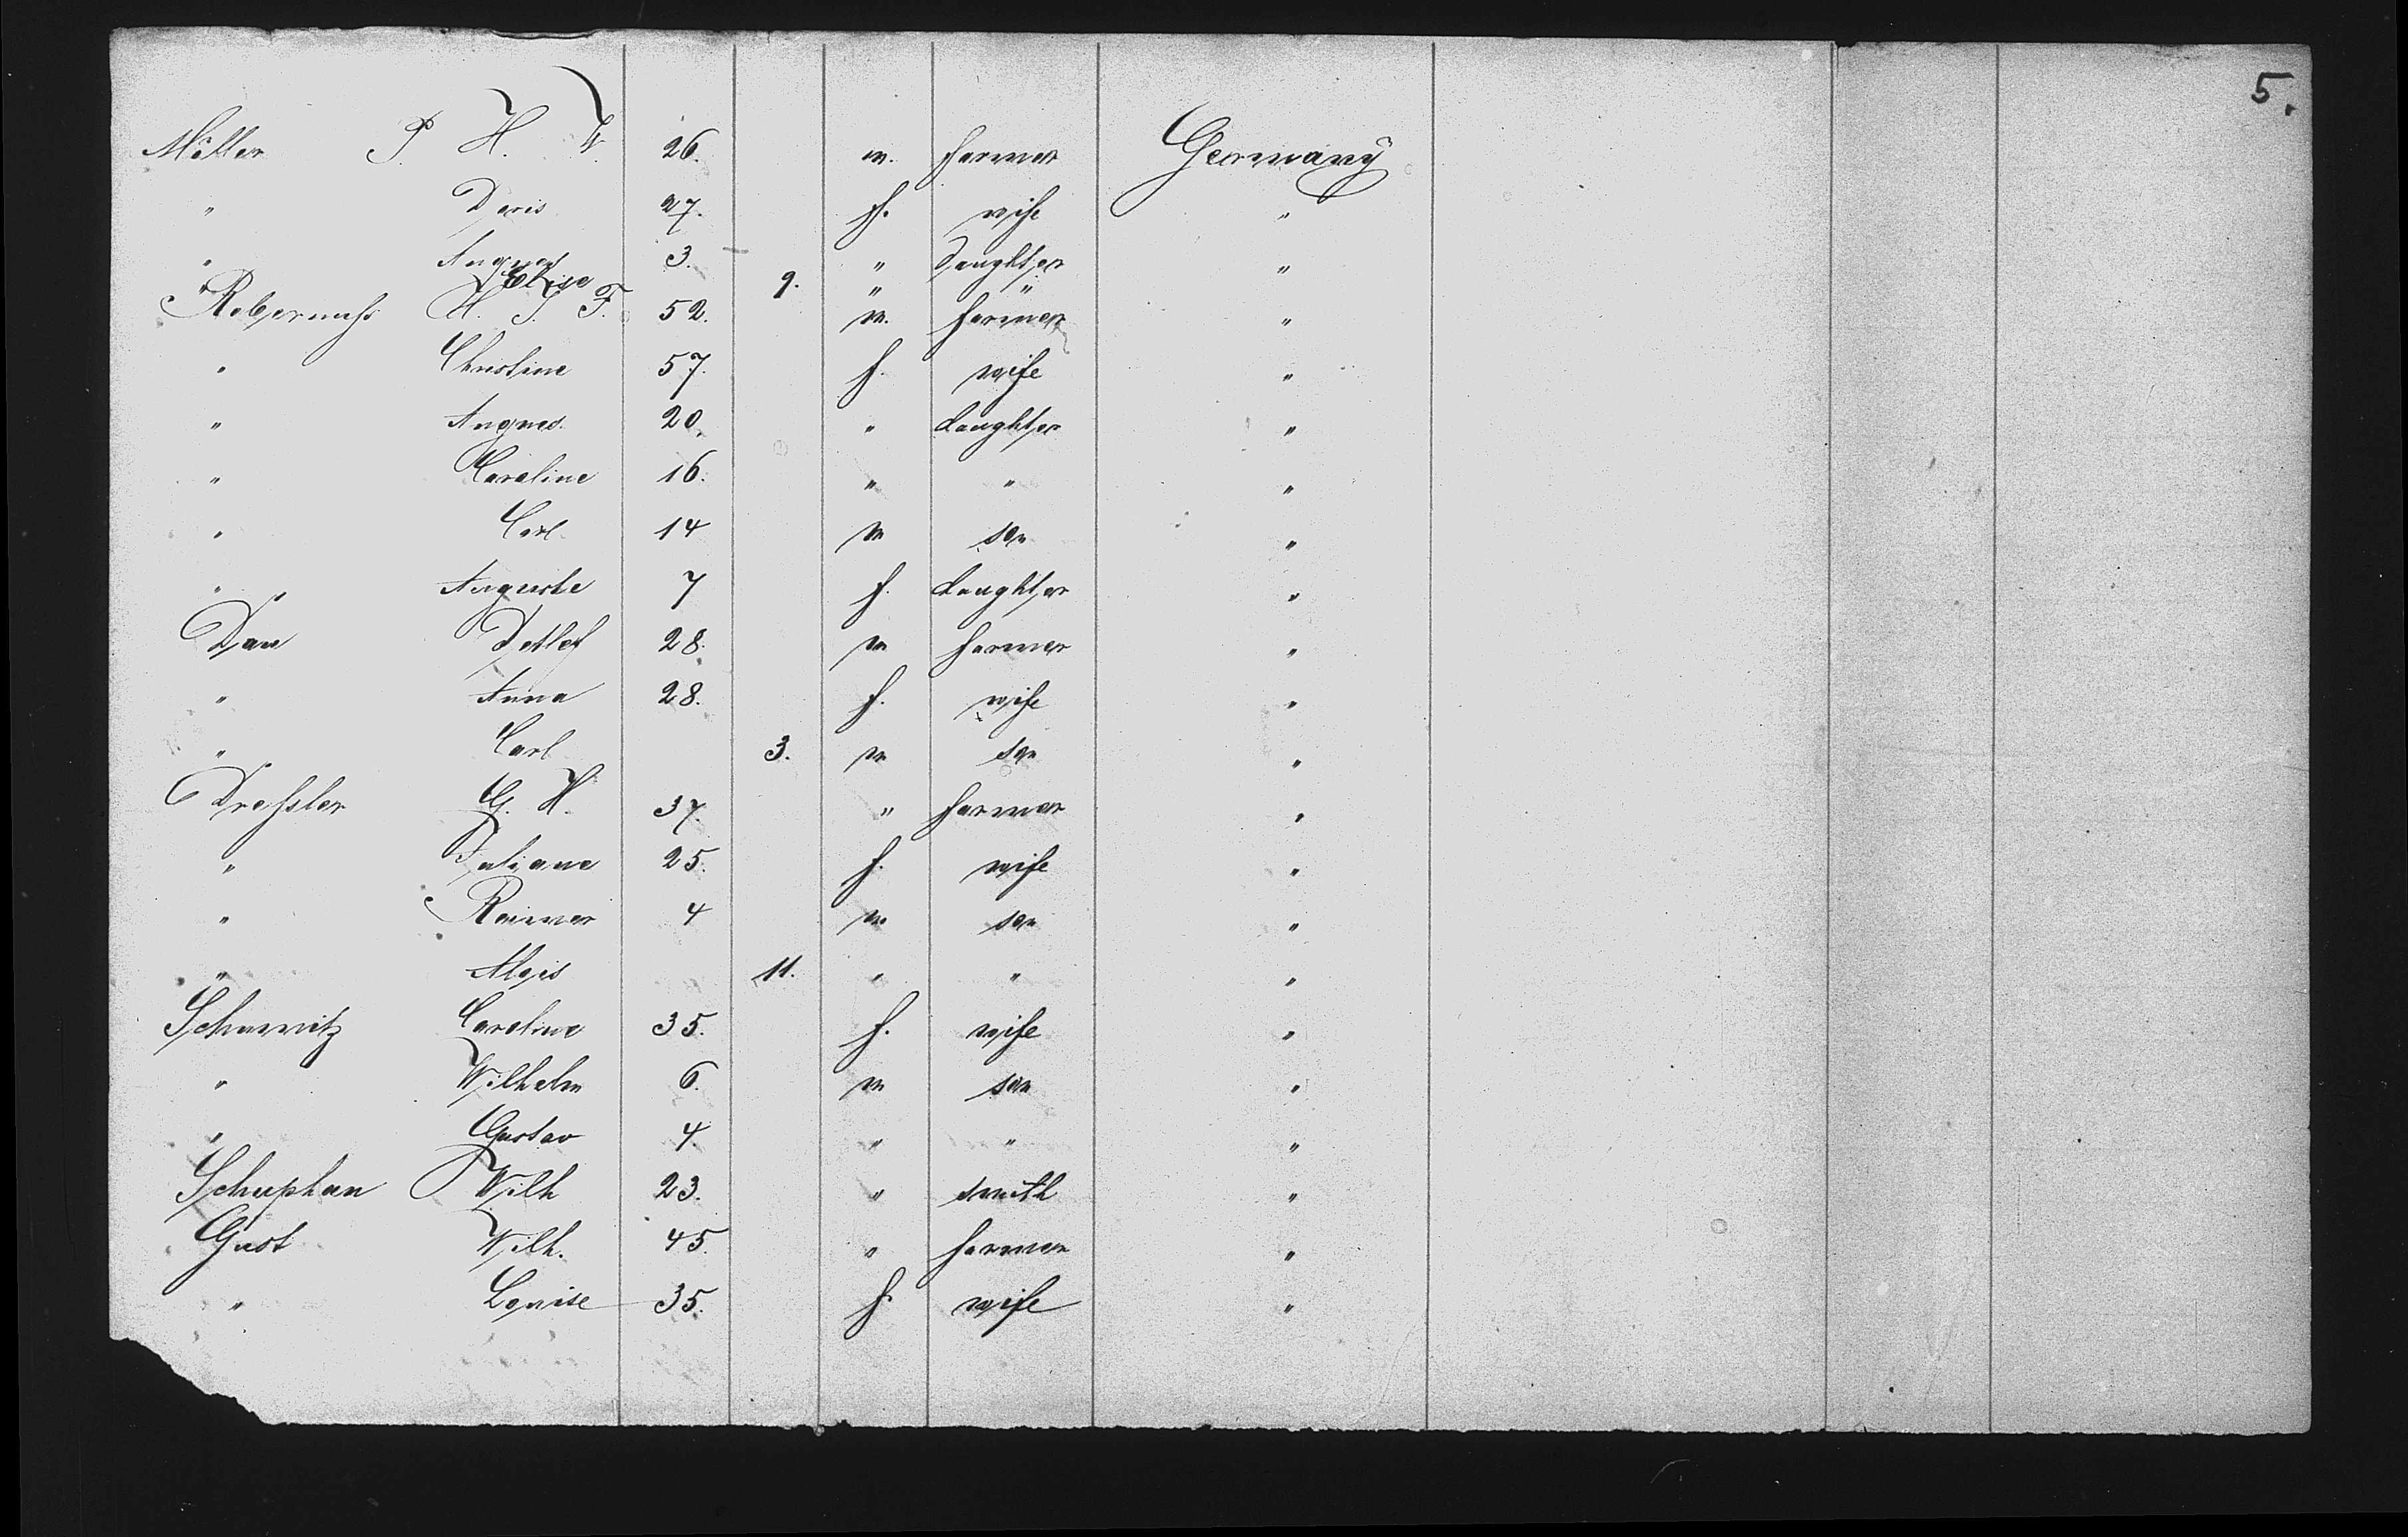 5.
Möller P. H. W. 26. m. farmer Germany
" Doris 27. f. wife "
" Angnes 3. " daughter "
" Elise 9. " "
Rebernuhs H. J. F. 52. m. farmer "
" Christine 57. f. wife "
" Angnes. 20. " daughter "
" Caroline 16. " " "
" Carl 14 m son "
" Auguste 7 f. daughter "
Dau Detlef 28. m farmer "
" Anna 28. f. wife "
" Carl 3. m son "
Dreßler G. H. 37. " farmer "
" Juliane 25. f. wife "
" Reimer 4 m son "
" Alois 11. " " "
Caroline 35. f. wife "
" Wilhelm 6. m son "
" Gustav 4. " " "
Schuphan Wilh 23. " smith "
Gust Wilh. 45. " farmer "
" Louise 35. f. wife "